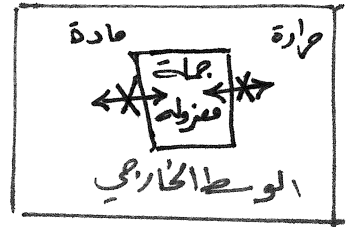 حرارة مادة
جملة
معزولة
الوسط الخارجي